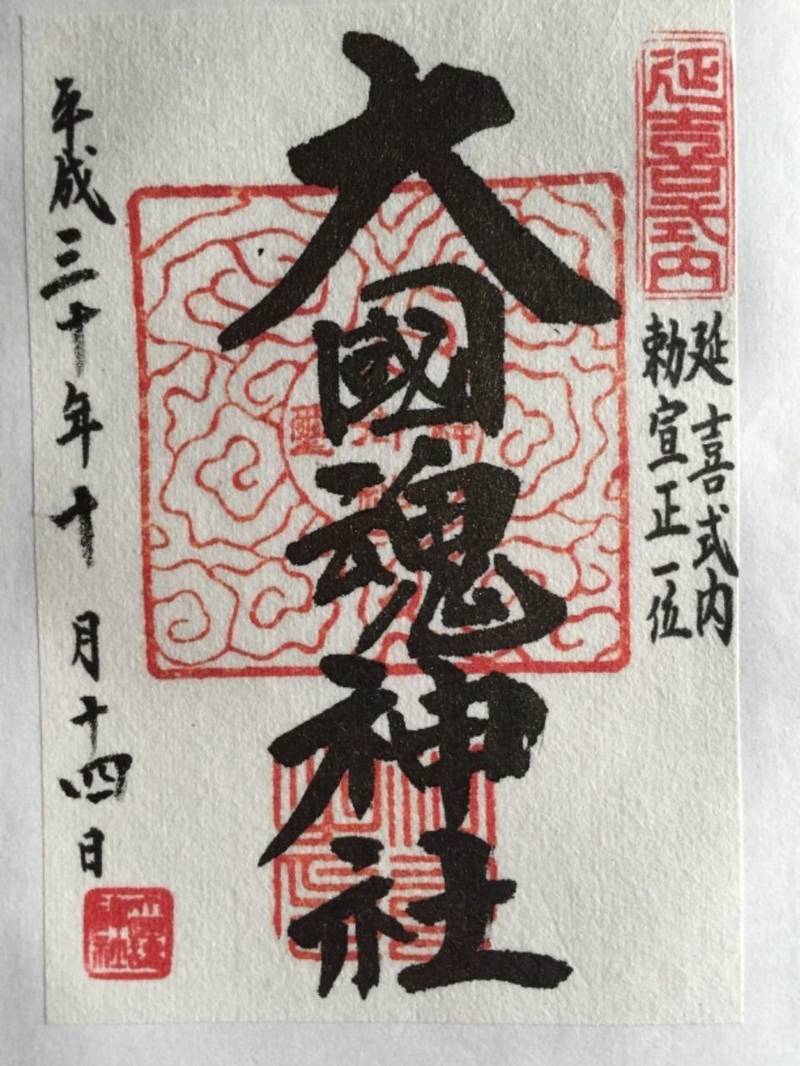 延喜式内
延喜式内
勅宣正一位
大國魂神社
平成三十年十月十四日